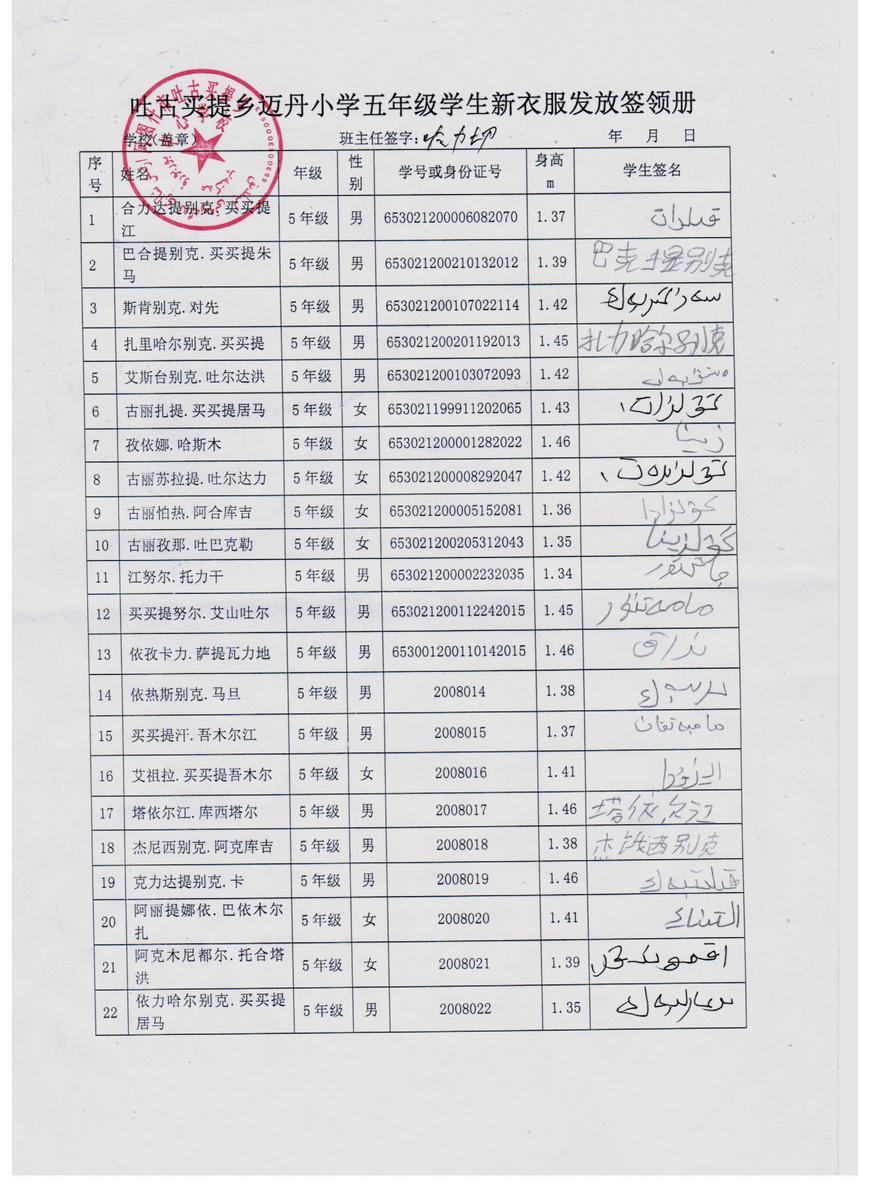 吐古买提乡迈丹小学五年级学生新衣服发放签领册
学校(盖章) 班主任签字: 年 月 日
序号 姓名 年级 性别 学号或身份证号 身高m 学生签名
1 合力达提别克.买买提江 5年级 男 653021200006082070 1.37
2 巴合提别克.买买提朱马 5年级 男 653021200210132012 1.39 巴克提别克
3 斯肯别克.对先 5年级 男 653021200107022114 1.42
4 扎里哈尔别克.买买提 5年级 男 653021200201192013 1.45 扎力哈尔别克
5 艾斯台别克.吐尔达洪 5年级 男 653021200103072093 1.42
6 古丽扎提.买买提居马 5年级 女 653021199911202065 1.43
7 孜依娜.哈斯木 5年级 女 653021200001282022 1.46
8 古丽苏拉提.吐尔达力 5年级 女 653021200008292047 1.42
9 古丽怕热.阿合库吉 5年级 女 653021200005152081 1.36
10 古丽孜那.吐巴克勒 5年级 女 653021200205312043 1.35
11 江努尔.托力干 5年级 男 653021200002232035 1.34
12 买买提努尔.艾山吐尔 5年级 男 653021200112242015 1.45
13 依孜卡力.萨提瓦力地 5年级 男 653001200110142015 1.46
14 依热斯别克.马旦 5年级 男 2008014 1.38
15 买买提汗.吾木尔江 5年级 男 2008015 1.37
16 艾祖拉.买买提吾木尔 5年级 女 2008016 1.41
17 塔依尔江.库西塔尔 5年级 男 2008017 1.46
18 杰尼西别克.阿克库吉 5年级 男 2008018 1.38
19 克力达提别克.卡 5年级 男 2008019 1.46
20 阿丽提娜依.巴依木尔扎 5年级 女 2008020 1.41
21 阿克木尼都尔.托合塔洪 5年级 女 2008021 1.39
22 依力哈尔别克.买买提居马 5年级 男 2008022 1.35